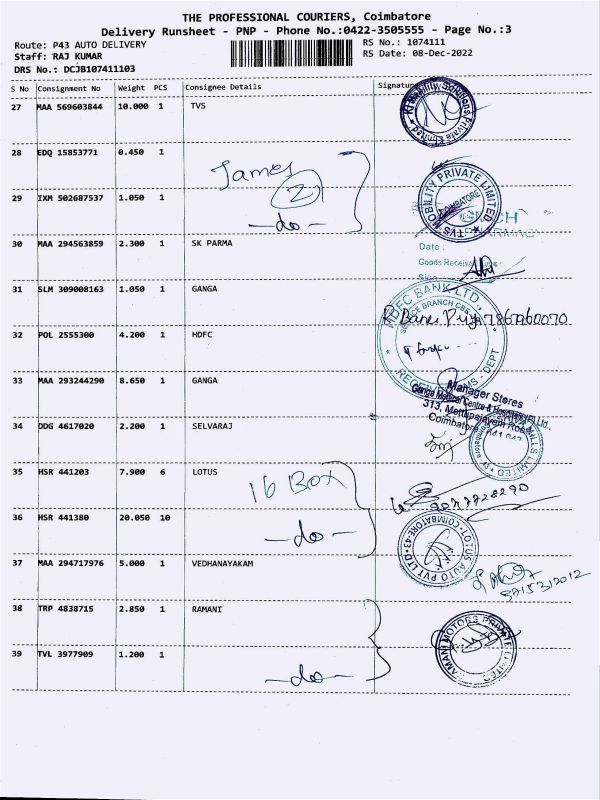 THE PROFESSIONAL COURIERS, Coimbatore
Delivery Runsheet - PNP - Phone No.:0422-3505555 - Page No.:3
Route: P43 AUTO DELIVERY
Staff: RAJ KUMAR
DRS No.: DCJB107411103
RS No.: 1074111
RS Date: 08-Dec-2022
S No Consignment No Weight PCS Consignee Details Signature
27 MAA 569603844 10.000 1 TVS
28 EDQ 15853771 0.450 1
James
2
29 IXM 502687537 1.050 1
-do-
TVS MOBILITY PRIVATE LIMITED
COIMBATORE
30 MAA 294563859 2.300 1 SK PARMA
Date :
Goods Received
31 SLM 309008163 1.050 1 GANGA
HDFC BANK LTD.,
SERVICE BRANCH
32 POL 2555300 4.200 1 HDFC
DEPT
33 MAA 293244290 8.650 1 GANGA
Manager Stores
Ganga Medical Centre & Hospitals (P) Ltd.,
313, Mettupalayam Road,
Coimbatore
34 DDG 4617020 2.200 1 SELVARAJ
MILLS LIMITED
35 HSR 441203 7.900 6 LOTUS
16 Box
36 HSR 441380 20.050 10
-do-
LOTUS AUTO PVT LTD
COIMBATORE-43
37 MAA 294717976 5.000 1 VEDHANAYAKAM
38 TRP 4838715 2.850 1 RAMANI
39 TVL 3977909 1.200 1
-do-